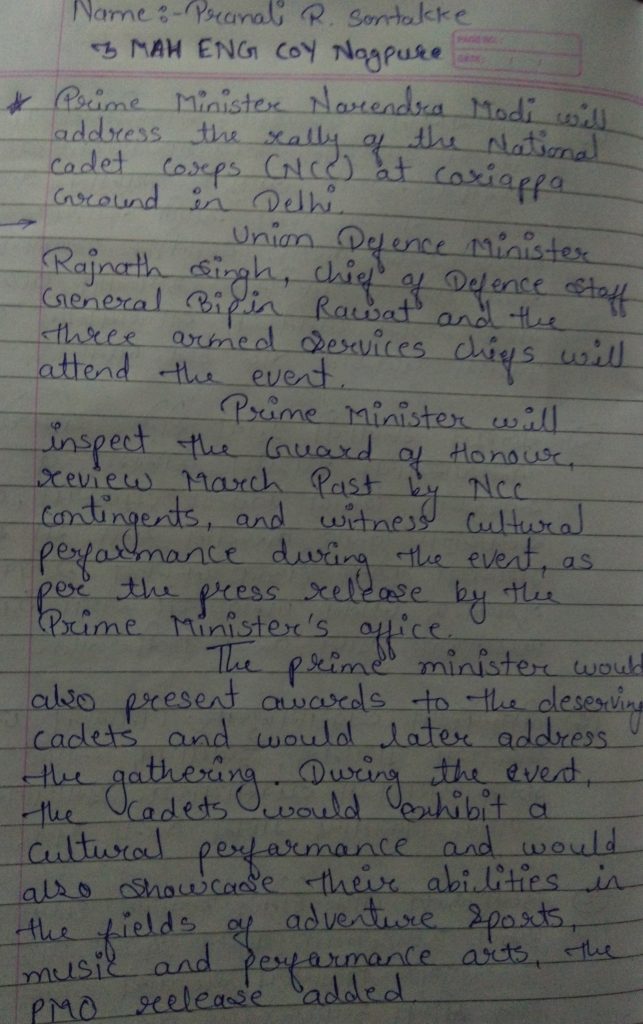 Name :- Pranali R. Sontakke
3 MAH ENG COY Nagpure
PAGE NO.
DATE: / /
* Prime Minister Narendra Modi will
address the rally of the National
cadet corps (NCC) at cariappa
Ground in Delhi.
→ Union Defence Minister
Rajnath Singh, chief of Defence staff
General Bipin Rawat and the
three armed services chiefs will
attend the event.
Prime Minister will
inspect the Guard of Honour,
review March Past by NCC
contingents, and witness cultural
performance during the event, as
per the press release by the
Prime Minister's office.
The prime minister would
also present awards to the deserving
cadets and would later address
the gathering. During the event,
the cadets would exhibit a
cultural performance and would
also showcase their abilities in
the fields of adventure sports,
music and performance arts, the
PMO release added.